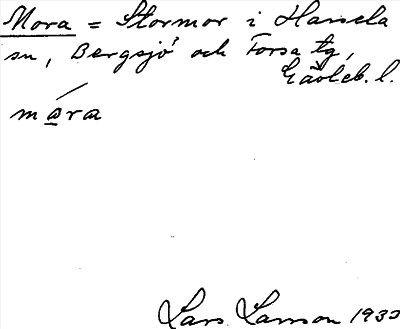 Mora = Stormor i Hassela
sn, Bergsjö och Forsa tg,
Gävleb. l.
måra
Lars Larsson 193